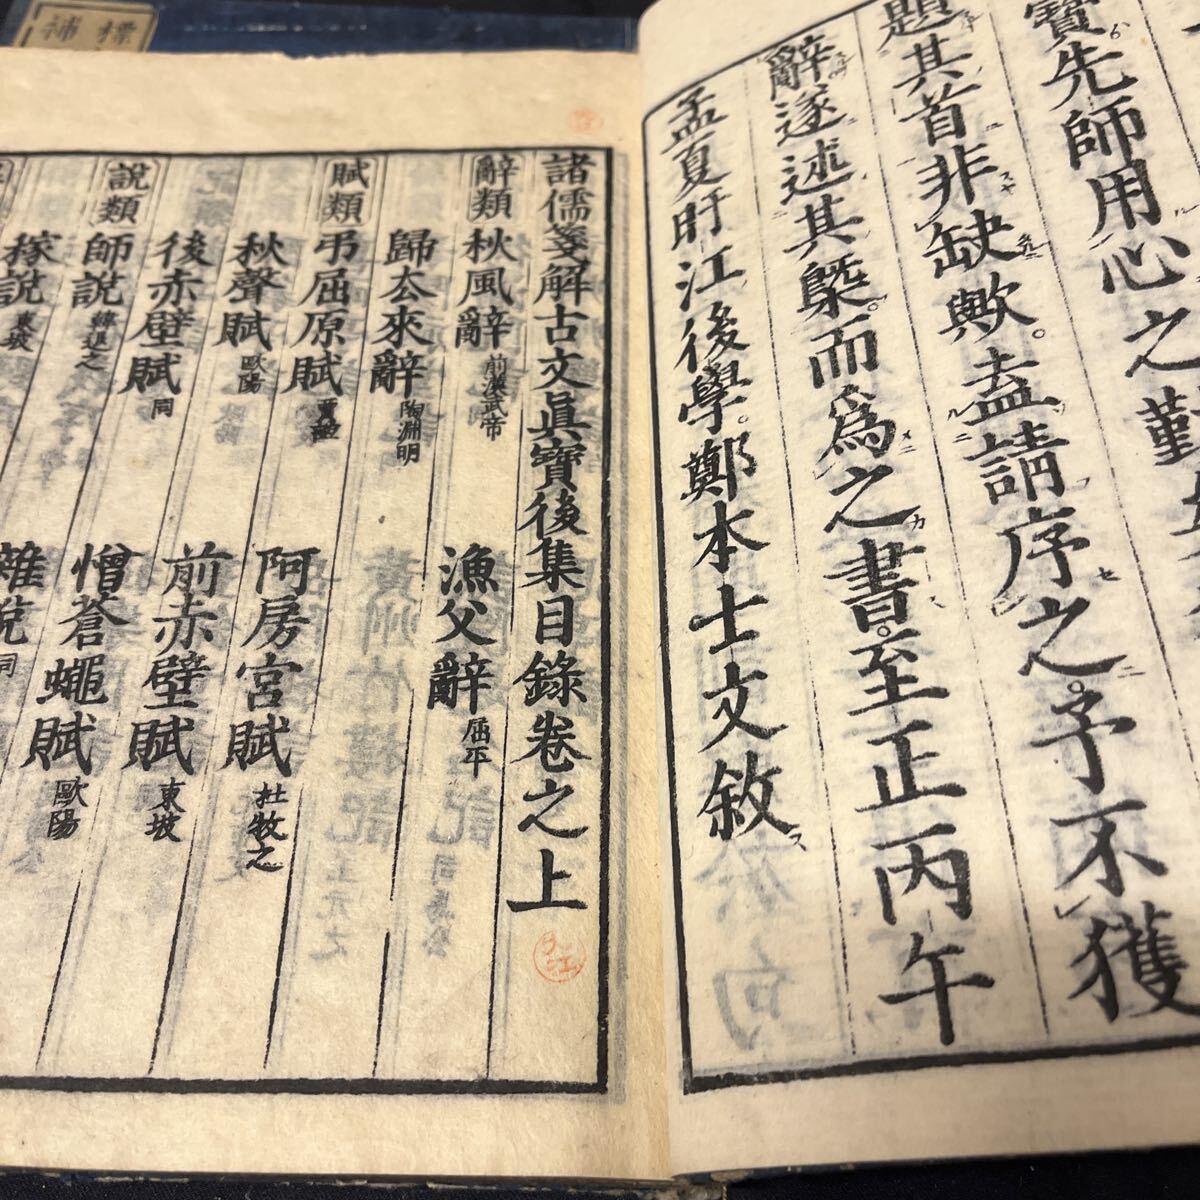 寶先師用心之勤
題其首非缺歟。盍請序之。予不獲
辭遂述其槩。而為之書。至正丙午
孟夏旴江後學。鄭本士文敘
諸儒箋解古文眞寶後集目錄卷之上
辭類 秋風辭 前漢武帝 漁父辭 屈平
歸去來辭 陶淵明
賦類 弔屈原賦 賈誼 阿房宮賦 杜牧之
秋聲賦 歐陽 前赤壁賦 東坡
後赤壁賦 同 憎蒼蠅賦 歐陽
說類 師說 韓退之 雜說 同
稼說 東坡
標
補